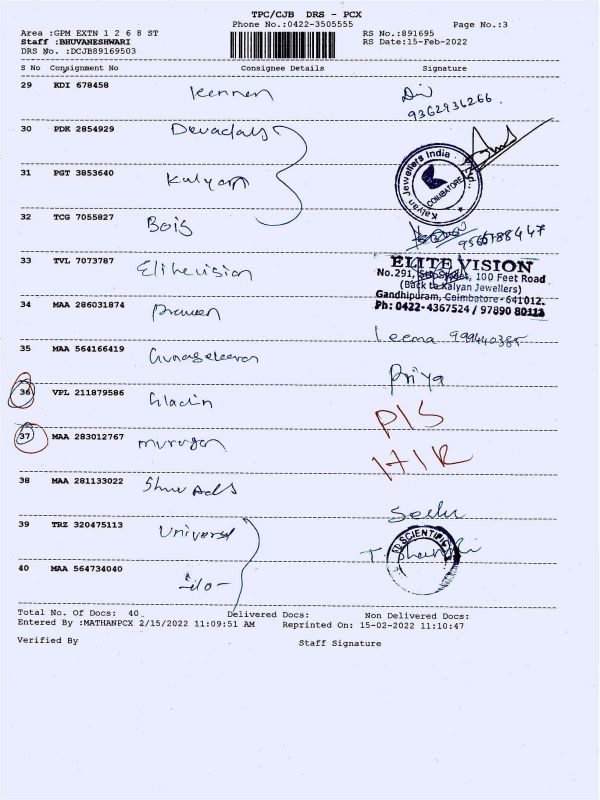 TPC/CJB DRS - PCX
Phone No.:0422-3505555 Page No.:3
Area :GPM EXTN 1 2 6 8 ST RS No.:891695
Staff :BHUVANESHWARI RS Date:15-Feb-2022
DRS No. :DCJB89169503
S No Consignment No Consignee Details Signature
29 KDI 678458 Kennen
9362936266
30 PDK 2854929 Devadals
Kalyan Jewellers India COIMBATORE
31 PGT 3853640 Kalyan
32 TCG 7055827 Bois
9566788447
33 TVL 7073787 Elitevision
ELITE VISION
No.291, 100 Feet Road
(Back to Kalyan Jewellers)
Gandhipuram, Coimbatore - 641012.
Ph: 0422-4367524 / 97890 80113
34 MAA 286031874 Praveen
Leema
35 MAA 564166419 Gunasekaran Priya
36 VPL 211879586 Gladin P/S
37 MAA 283012767 Murugan H/R
38 MAA 281133022 Shree Ads
39 TRZ 320475113 Universal
SCIENTIFIC
40 MAA 564734040 -do-
Total No. Of Docs: 40 Delivered Docs: Non Delivered Docs:
Entered By :MATHANPCX 2/15/2022 11:09:51 AM Reprinted On: 15-02-2022 11:10:47
Verified By Staff Signature